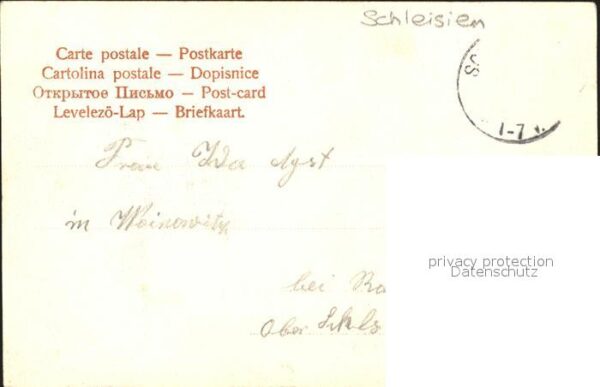 Schleisien
Carte postale — Postkarte
Cartolina postale — Dopisnice
Открытое Письмо — Post-card
Levelező-Lap — Briefkaart.
S
1-7
Frau Ida
in Woinowitz
bei Ra
Ober Schles
privacy protection
Datenschutz